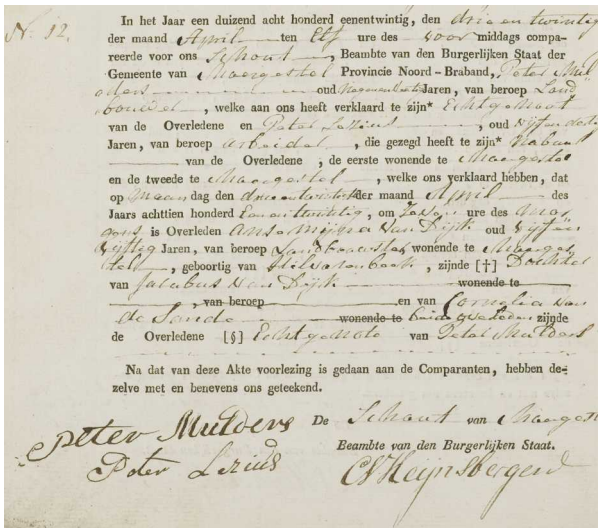 N. 12.
In het Jaar een duizend acht honderd eenentwintig, den drie en twintig
der maand April ten Elf ure des voor middags compa-
reerde voor ons Schout, Beambte van den Burgerlijken Staat der
Gemeente van Moergestel Provincie Noord-Braband, Peter Mul
ders oud Jaren, van beroep Land
bouwer, welke aan ons heeft verklaard te zijn* Echtgenoot
van de Overledene en Peter Lezius, oud vijfendertig
Jaren, van beroep arbeider, die gezegd heeft te zijn* Nabuur
van de Overledene, de eerste wonende te Moergestel
en de tweede te Moergestel, welke ons verklaard hebben, dat
op Maandag den drieentwintigste der maand April des
Jaars achttien honderd Eenentwintig, om Zeven ure des Mor
gens is Overleden Ansemijna van Dijk oud vijfen
vijftig Jaren, van beroep Landbouwster, wonende te Moerges
tel, geboortig van Hilvarenbeek, zijnde [†] Dochter
van Jakobus van Dijk wonende te
, van beroep en van Cornelia van
de Sande wonende te beide overleden zijnde
de Overledene [§] Echtgenote van Peter Mulders
Na dat van deze Akte voorlezing is gedaan aan de Comparanten, hebben de-
zelve met en benevens ons geteekend.
Peter Mulders De Schout van Moergestel
Beambte van den Burgerlijken Staat.
Peter Lezius